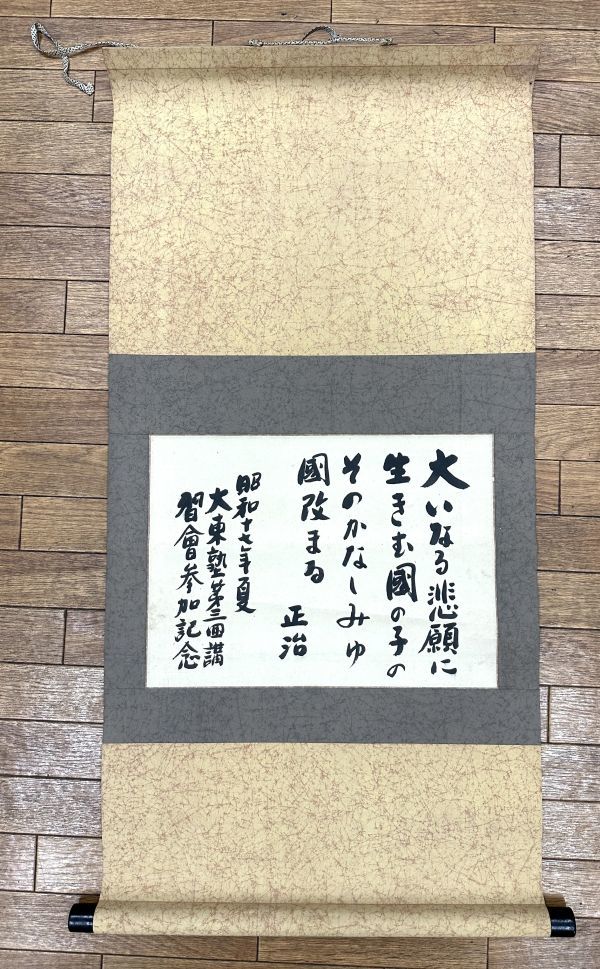 大いなる悲願に
生きむ國の子の
そのかなしみゆ
國改まる
正治
昭和十七年夏
大東塾第三回講
習會参加記念